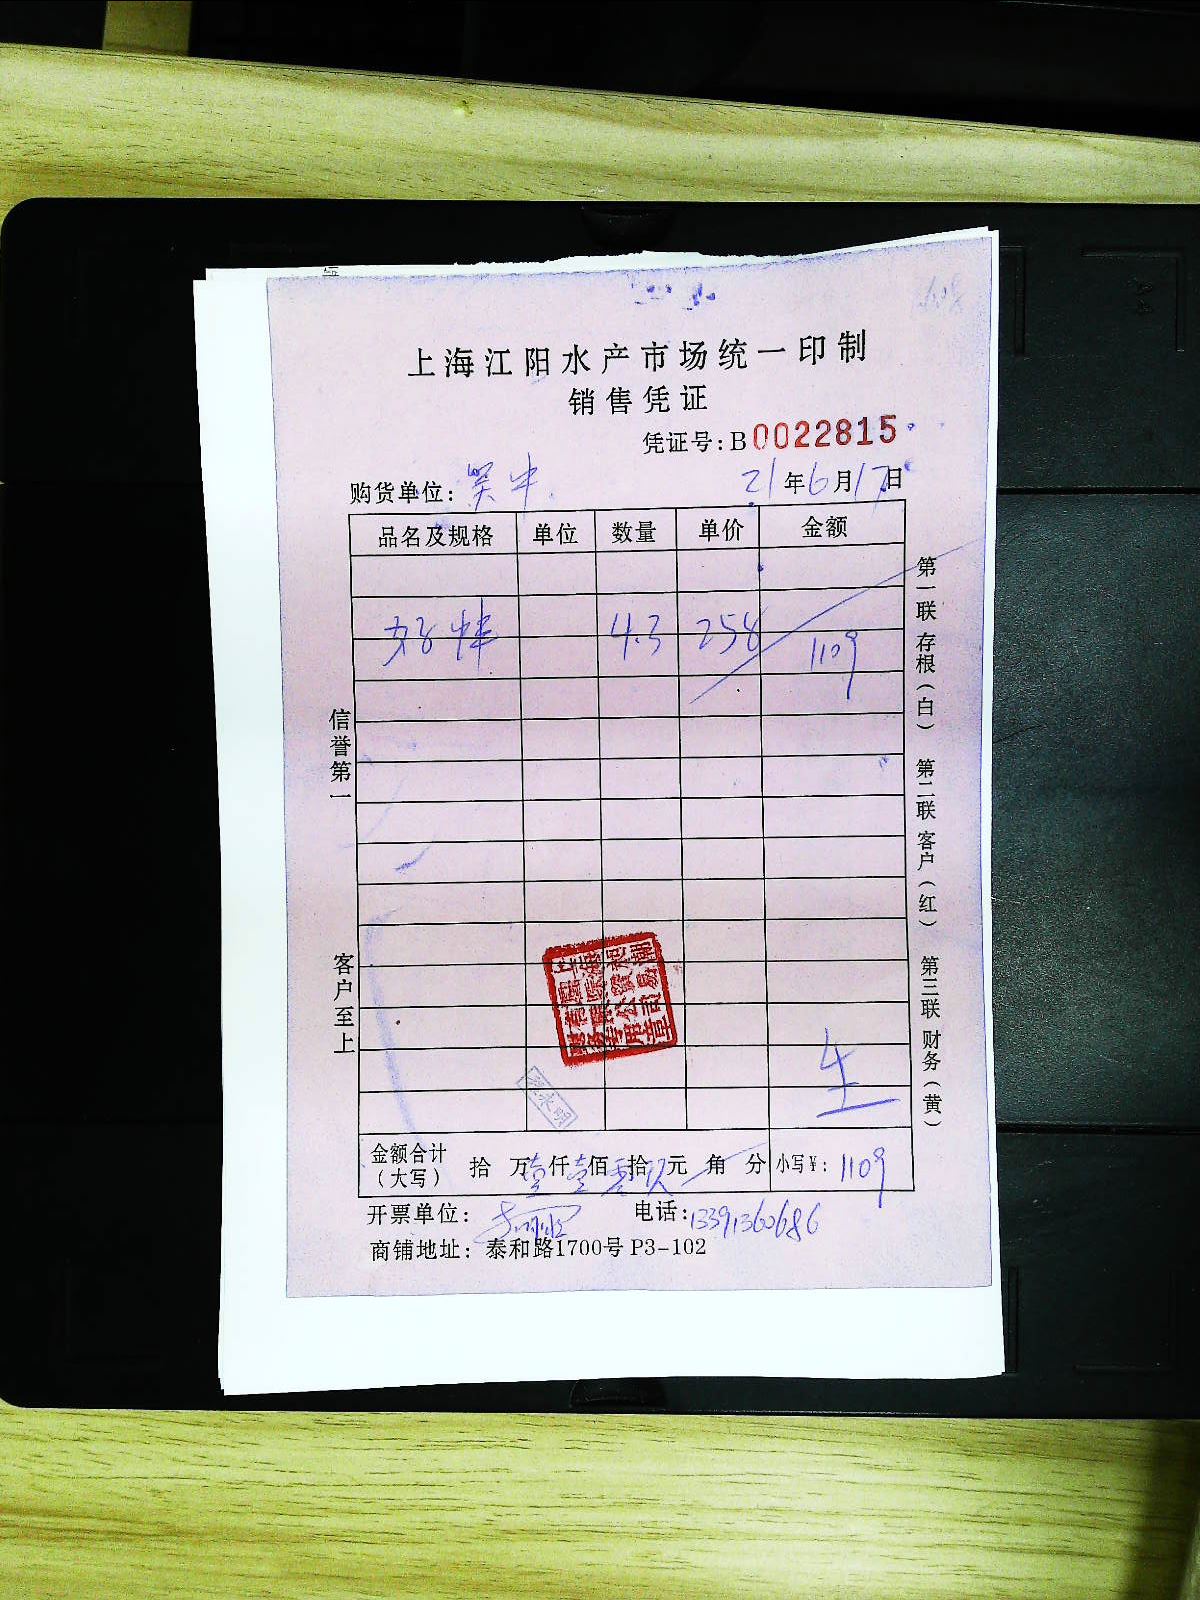 上海江阳水产市场统一印制
销售凭证
凭证号:B0022815
购货单位: 吴中 21年6月17日
品名及规格 单位 数量 单价 金额
4.3 258 1109
信誉第一
客户至上
第一联 存根(白) 第二联 客户(红) 第三联 财务(黄)
金额合计(大写) 拾 万壹仟壹佰零拾玖元 角 分 小写¥: 1109
开票单位: 电话:13391360686
商铺地址: 泰和路1700号 P3-102